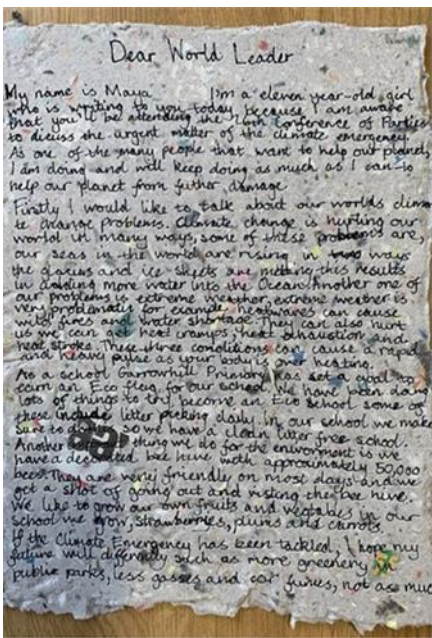 Dear World Leader
My name is Maya I'm a eleven year-old girl
who is writing to you today because I am aware
that you'll be attending the 26th Conference of Parties
to dicuss the urgent matter of the climate emergency.
As one of the many people that want to help our planet,
I am doing and will keep doing as much as I can to
help our planet from futher damage
Firstly I would like to talk about our worlds clima
te change problems. Climate change is hurting our
world in many ways, some of these problems are,
our seas in the world are rising in ways
the glaciers and ice sheets are melting this results
in adding more water into the Ocean. Another one of
our problems is extreme weather, extreme weather is
very problematic for example, heatwaves can cause
wild fires and water shortage. They can also hurt
us we can get heat cramps, heat exhaustion and
heat stroke. These three conditions can cause a rapid
and heavy pulse as your body is over heating.
As a school Garrowhill Primary has set a goal to
earn an Eco flag for our school. We have been doing
lots of things to try become an Eco school some of
these include litter picking daily in our school we make
sure to do so we have a clean litter free school.
Another thing we do for the enviorment is we
have a decorated bee hive with approximately 50,000
bees. They are very friendly on most days and we
get a shot of going out and visting the bee hive.
We like to grow our own fruits and vegtables in our
school we grow, strawberries, plums and carrots.
If the Climate Emergency has been tackled, I hope my
future will differently such as more greenery
public parks, less gasses and car fumes, not as muc